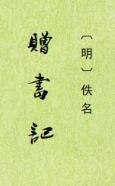 〔明〕佚名
贈書記